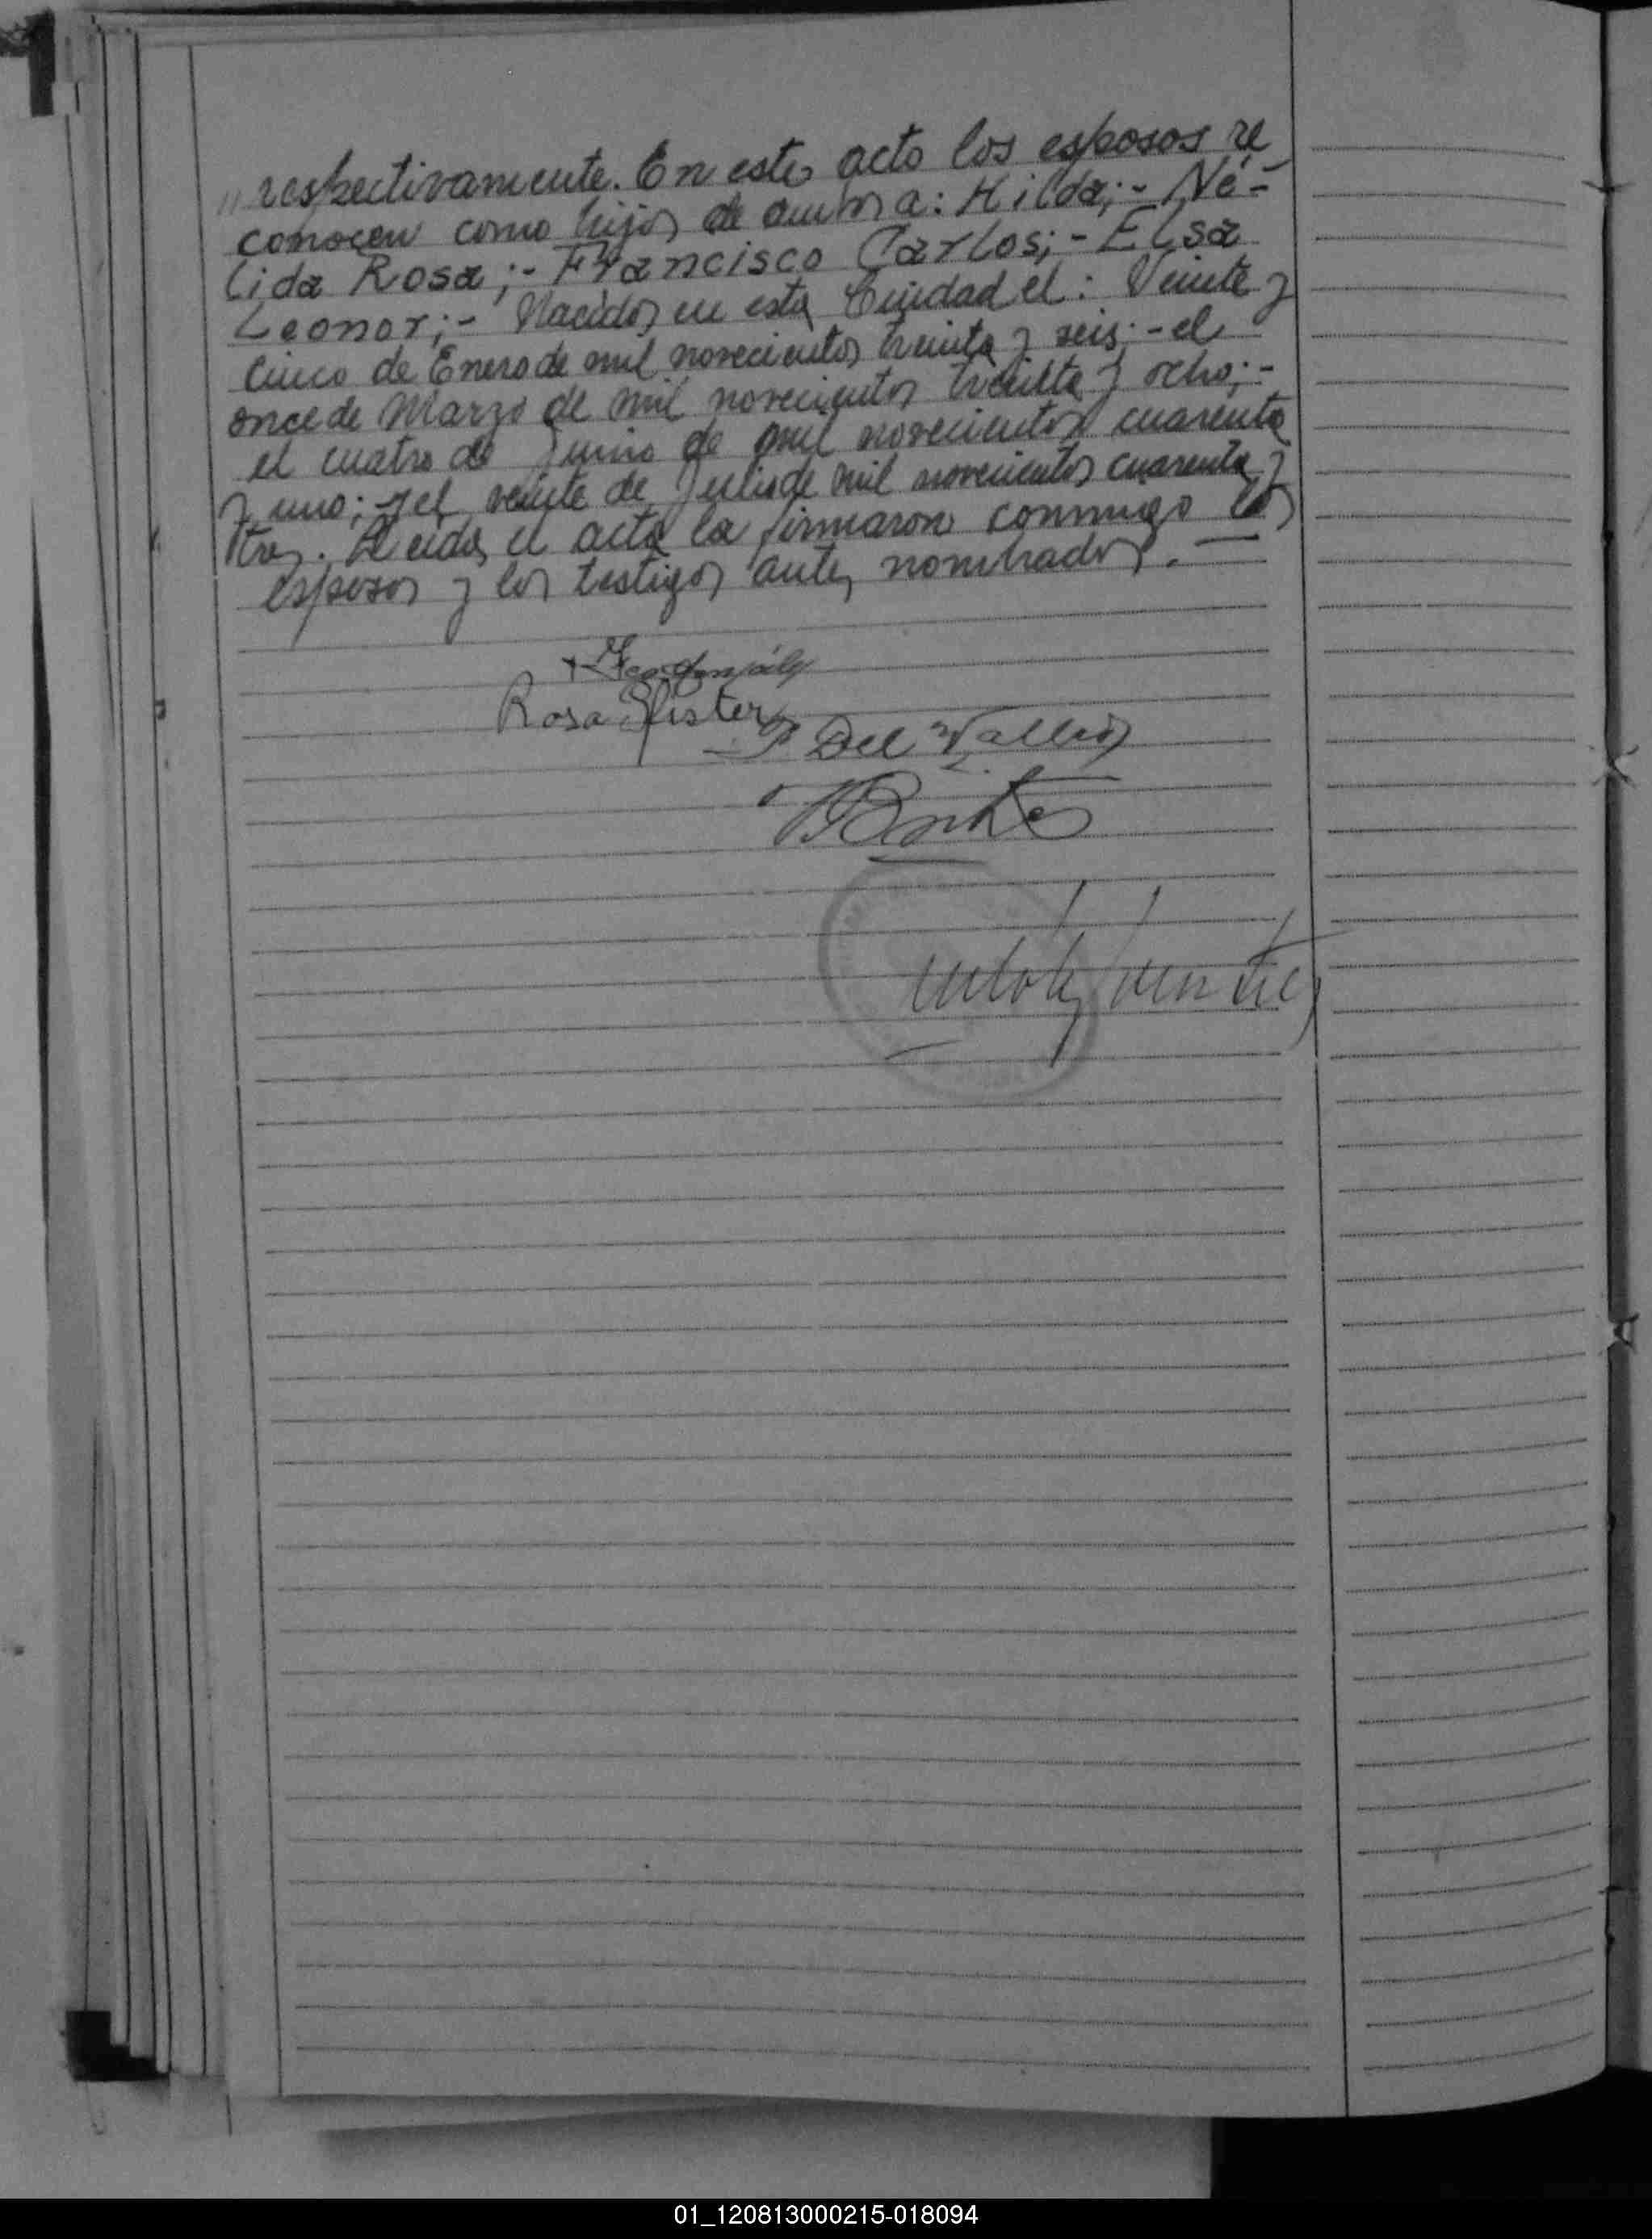 „ respectivamente. En este acto los esposos re
conocen como hijos de ambos a: Hilda;- Né-
lida Rosa;- Francisco Carlos;- Elsa
Leonor;- Nacidos en esta Ciudad el: Veinte y
cinco de Enero de mil novecientos treinta y seis;- el
once de Marzo de mil novecientos treinta y ocho;-
el cuatro de Junio de mil novecientos cuarenta
y uno; y el veinte de Julio de mil novecientos cuarenta y
tres. Leida el acta la firmaron conmigo los
esposos y los testigos antes nombrados. —
Fco González
Rosa Pfister
P Del Valle
01_120813000215-018094